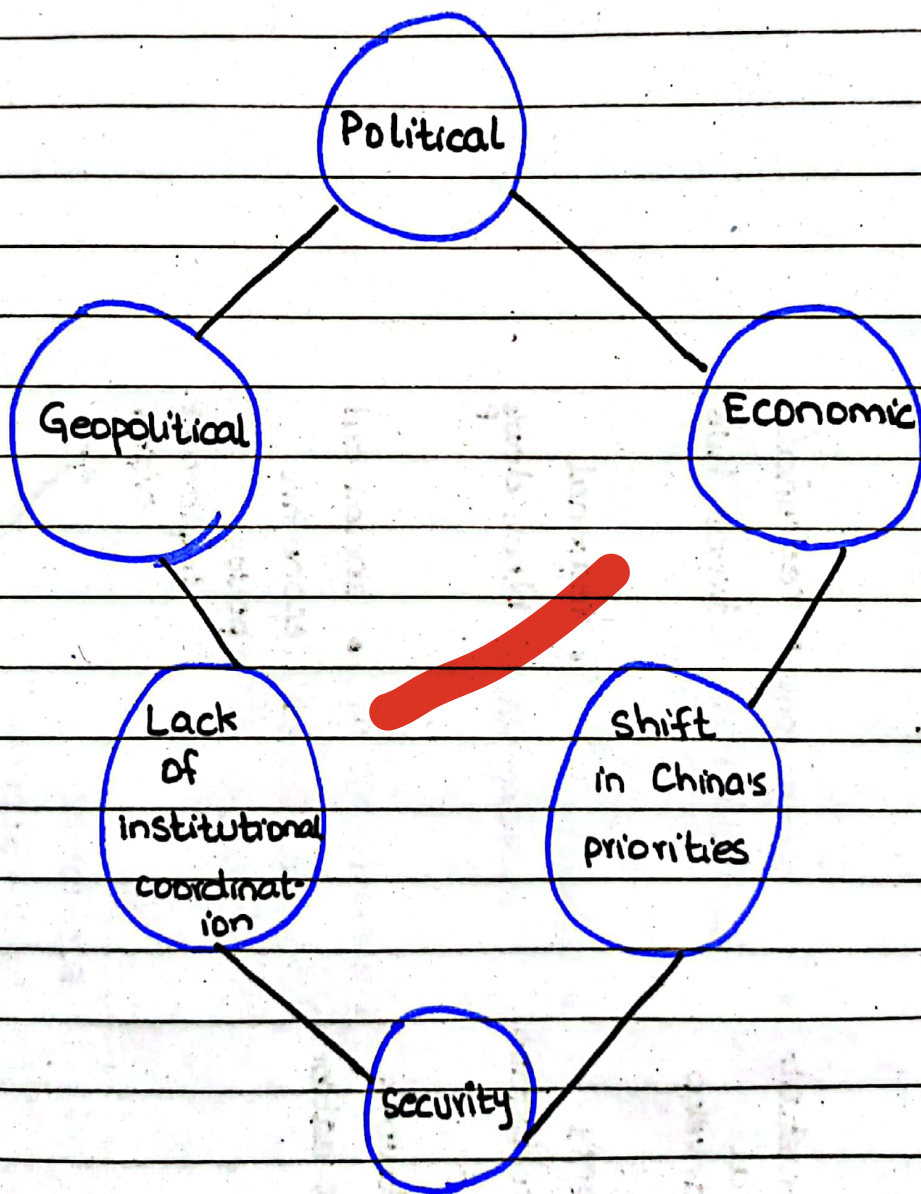 Political
Geopolitical
Economic
Lack
of
institutional
coordinat-
ion
shift
in China's
priorities
security